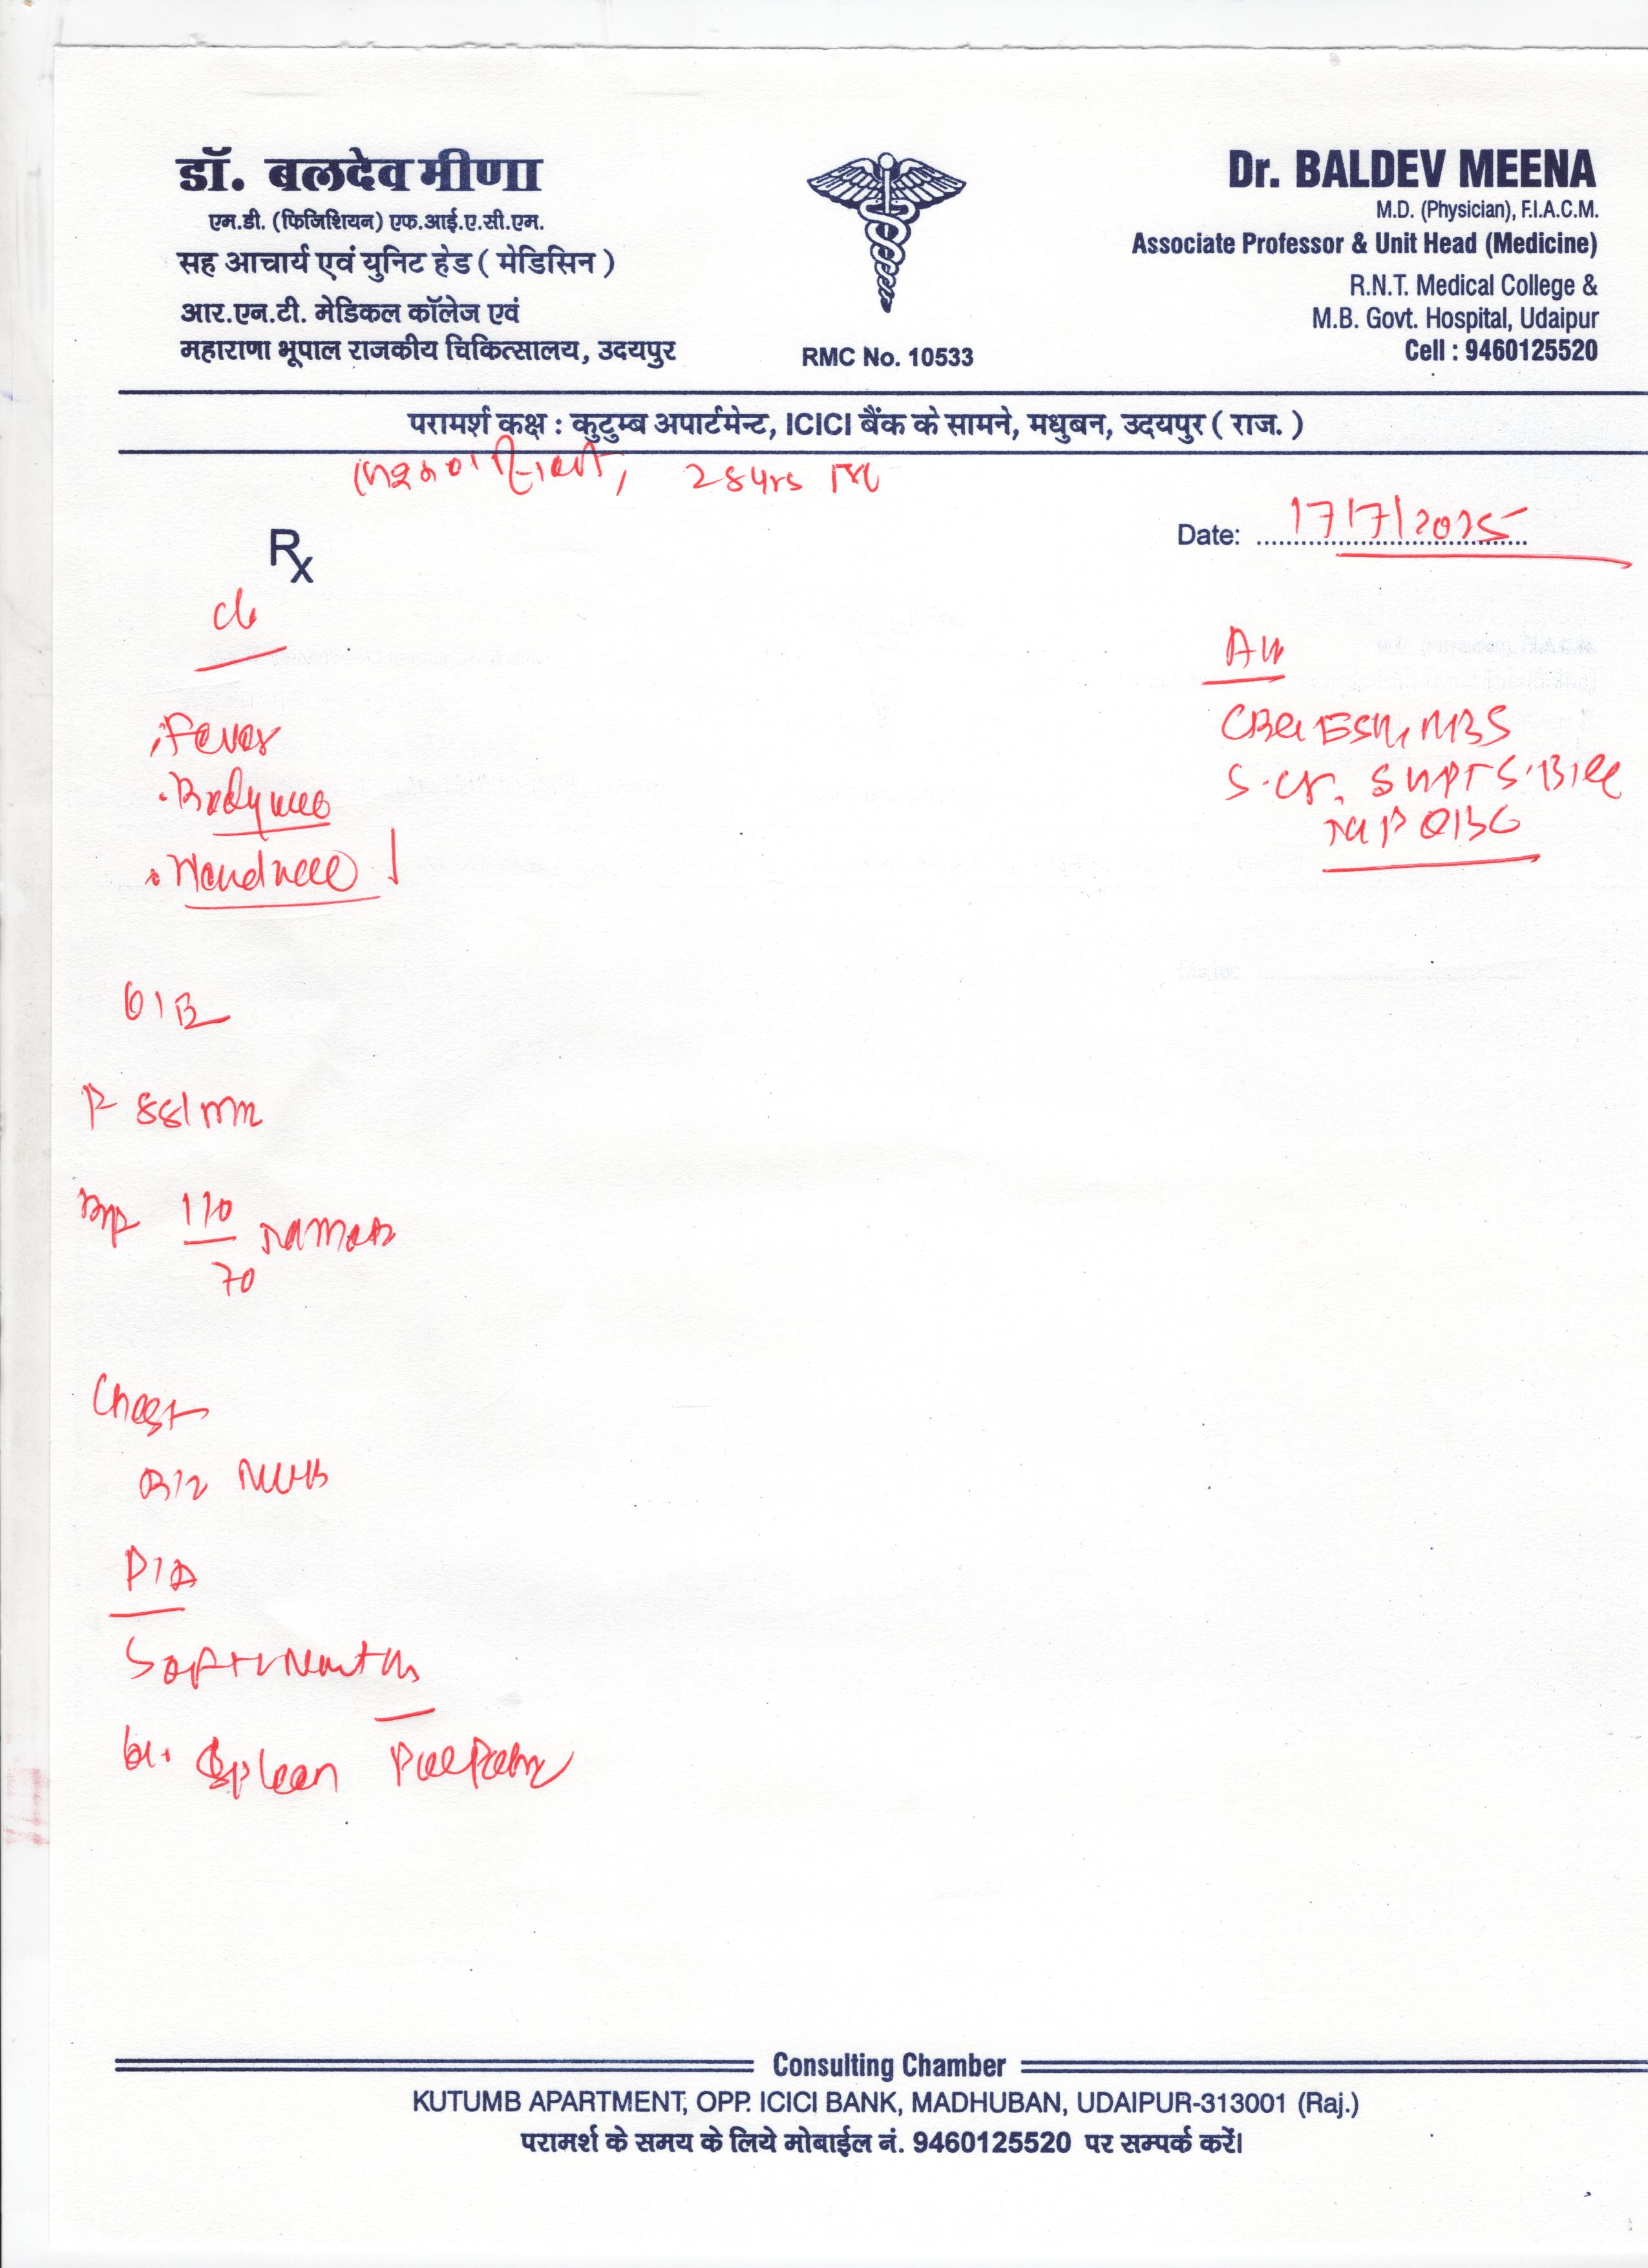 डॉ. बलदेव मीणा
एम.डी. (फिजिशियन) एफ.आई.ए.सी.एम.
सह आचार्य एवं युनिट हेड ( मेडिसिन )
आर.एन.टी. मेडिकल कॉलेज एवं
महाराणा भूपाल राजकीय चिकित्सालय, उदयपुर
RMC No. 10533
Dr. BALDEV MEENA
M.D. (Physician), F.I.A.C.M.
Associate Professor & Unit Head (Medicine)
R.N.T. Medical College &
M.B. Govt. Hospital, Udaipur
Cell : 9460125520
परामर्श कक्ष : कुटुम्ब अपार्टमेन्ट, ICICI बैंक के सामने, मधुबन, उदयपुर ( राज. )
28 yrs
Rx
Date: 17/7/2025
c/o
Fever
Bodyache
Headache
Adv
CBC ESR, MBS
S.Cr. SGPT S.Bill
MP QBC
O/E
P 88/min
BP 110/70 mmHg
Chest
P/A
Soft
Spleen
Consulting Chamber
KUTUMB APARTMENT, OPP. ICICI BANK, MADHUBAN, UDAIPUR-313001 (Raj.)
परामर्श के समय के लिये मोबाईल नं. 9460125520 पर सम्पर्क करें।